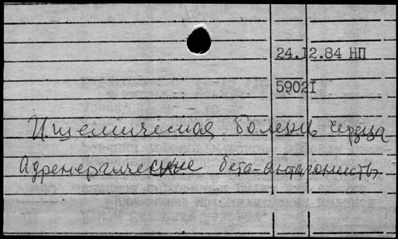 24.I2.84 НП
5902I
Ишемическая болезнь сердца
Адренергические бета-антагонисты